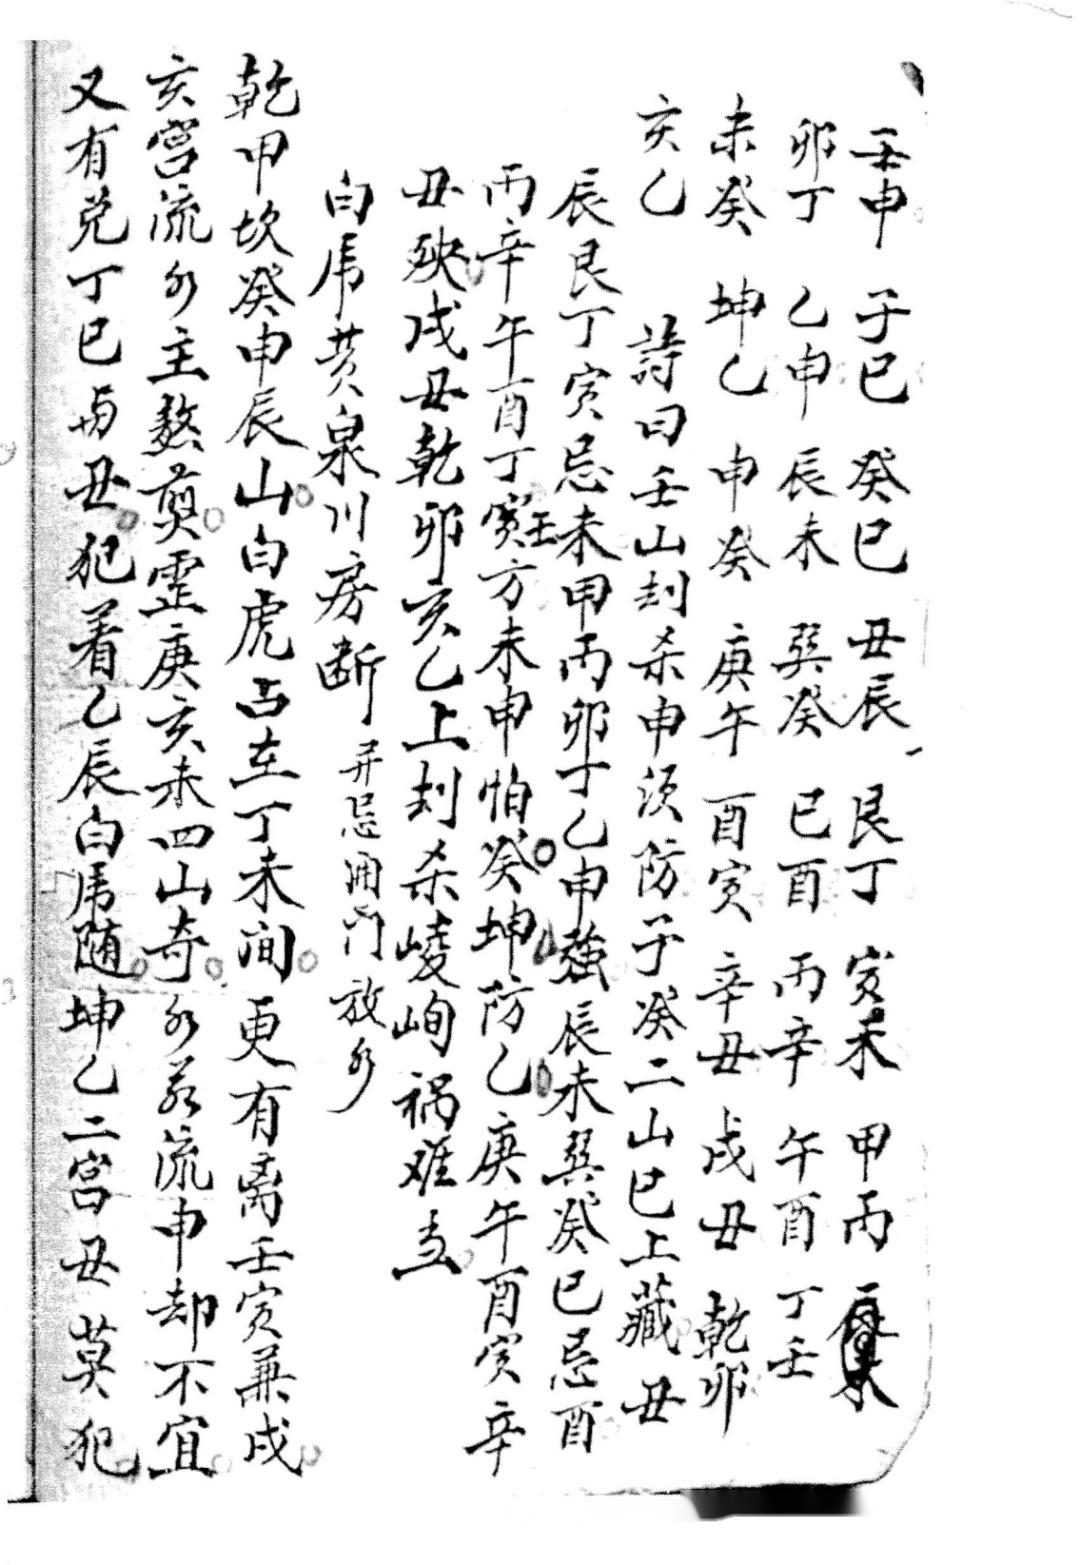 壬申 子巳 癸巳 丑辰 艮丁 寅未 甲丙
卯丁 乙申 辰未 巽癸 巳酉 丙辛 午酉 丁壬
未癸 坤乙 申癸 庚午 酉寅 辛丑 戌丑 乾卯
亥乙 詩曰壬山刦杀申须防子癸二山巳上藏丑
辰艮丁寅忌未甲丙卯丁乙申強辰未巽癸巳忌酉
丙辛午酉丁寅壬方未申怕癸坤防乙庚午酉寅辛
丑殃戌丑乾卯亥乙上刦杀崚峋祸难当
白虎黄泉川房断 并忌涌门放水
乾甲坎癸申辰山白虎占在丁未间更有离壬寅兼戌
亥宫流水主熬煎震庚亥未四山奇水若流申却不宜
又有兑丁巳与丑犯着乙辰白虎随坤乙二宫丑莫犯